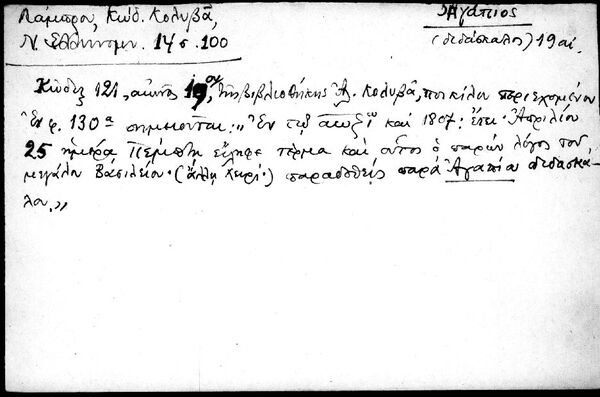 Λάμπρου, Κώδ. Κολυβᾶ,
Ν. Ἑλληνομν. 14 σ. 100
Ἀγάπιος
(διδάσκαλος) 19 αἰ.
Κώδιξ 121, αἰῶνος 19ου, τῆς βιβλιοθήκης Ἀλ. Κολυβᾶ, ποικίλου περιεχομένου
Ἐν φ. 130α σημειοῦται: „Ἐν τῷ αωζῳ καὶ 1807: ἔτει Ἀπριλίου
25 ἡμέρᾳ Πέμπτῃ εἴληφε τέρμα καὶ οὗτος ὁ παρὼν λόγος τοῦ
μεγάλου Βασιλείου· (ἄλλῃ χειρί·) παραδοθεὶς παρὰ Ἀγαπίου διδασκά-
λου.„